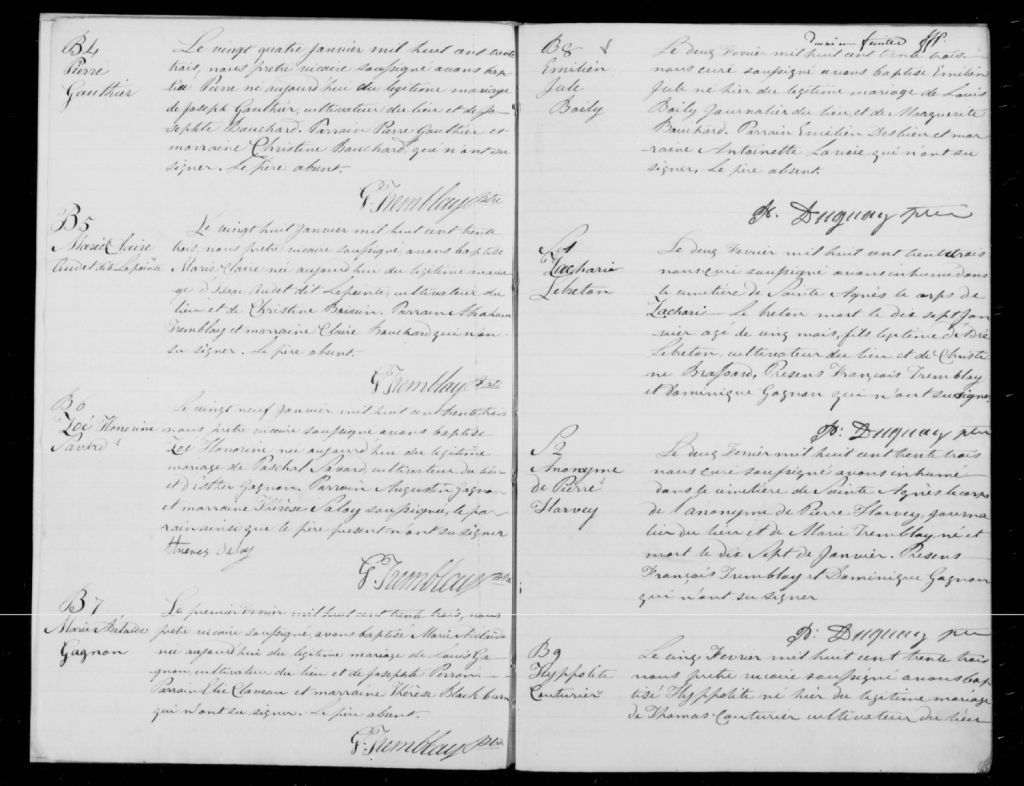 B4
Pierre
Gauthier
Le vingt quatre Janvier mil huit cent trente
trois, nous prêtre vicaire soussigné avons bap-
tisé Pierre né aujourd'hui du légitime mariage
de Joseph Gauthier, cultivateur du lieu et de Jo-
sephte Bouchard. Parrain Pierre Gauthier et
marraine Christine Bouchard, qui n'ont su
signer. Le père absent.
G. Tremblay Ptre
B5
Marie Claire
Audet dit Lapointe
Le vingt huit Janvier mil huit cent trente
trois, nous prêtre vicaire soussigné avons baptisé
Marie Claire née aujourd'hui du légitime maria-
ge d' Audet dit Lapointe, cultivateur du
lieu et de Christine Boivin. Parrain Abraham
Tremblay et marraine Claire Bouchard qui n'ont
su signer. Le père absent.
G. Tremblay Ptre
B6
Zoé Honorine
Savard
Le vingt neuf Janvier mil huit cent trente trois
nous prêtre vicaire soussigné avons baptisé
Zoé Honorine née aujourd'hui du légitime
mariage de Paschal Savard, cultivateur du lieu
et d'Esther Gagnon. Parrain Augustin Gagnon
et marraine Thérèse Saloy soussignée, le par-
rain ainsi que le père présent n'ont su signer
G. Tremblay Ptre
B7
Marie Adélaïde
Gagnon
Le premier Fevrier mil huit cent trente trois, nous
prêtre vicaire soussigné, avons baptisé Marie Adélaïde
née aujourd'hui du légitime mariage de Louis Ga-
gnon, cultivateur du lieu et de Josephte Perron.
Parrain Elie Claveau et marraine Thérèse Blackburn
qui n'ont su signer. Le père absent.
G. Tremblay Ptre
feuillet
B8
Emilién
Jule
Boily
Le deux Fevrier mil huit cent trente trois
nous curé soussigné avons baptisé Emilien
Jule né hier du légitime mariage de Louis
Boily Journalier du lieu, et de Marguerite
Bouchard. Parrain Emilien Desbien et mar-
raine Antoinette Lavoie qui n'ont su
signer, le père absent.
P. Duguay ptre
S1
Zacharie
Lebreton
Le deux Fevrier mil huit cent trente trois
nous curé soussigné avons inhumé dans
le cimetière de Sainte Agnès le corps de
Zacharie Le breton mort le dix sept Jan-
vier agé de cinq mois, fils légitime d'André
Lebreton, cultivateur du lieu et de Christi-
ne Brassard, Présens François Tremblay
et Dominique Gagnon qui n'ont su signer.
P. Duguay ptre
S2
Anonyme
de Pierre
Harvey
Le deux Fevrier mil huit cent trente trois
nous curé soussigné avons inhumé
dans le cimetière de Sainte Agnès le corps
de l'anonyme de Pierre Harvey, journa-
lier du lieu et de Marie Tremblay, né et
mort le dix Sept de Janvier. Présens
François Tremblay et Dominique Gagnon
qui n'ont su signer
P. Duguay ptre
B9
Hyppolite
Couturier
Le cinq Fevrier mil huit cent trente trois
nous prêtre vicaire soussigné avons bap-
tisé Hyppolite né hier du légitime mariage
de Thomas Couturier cultivateur du lieu